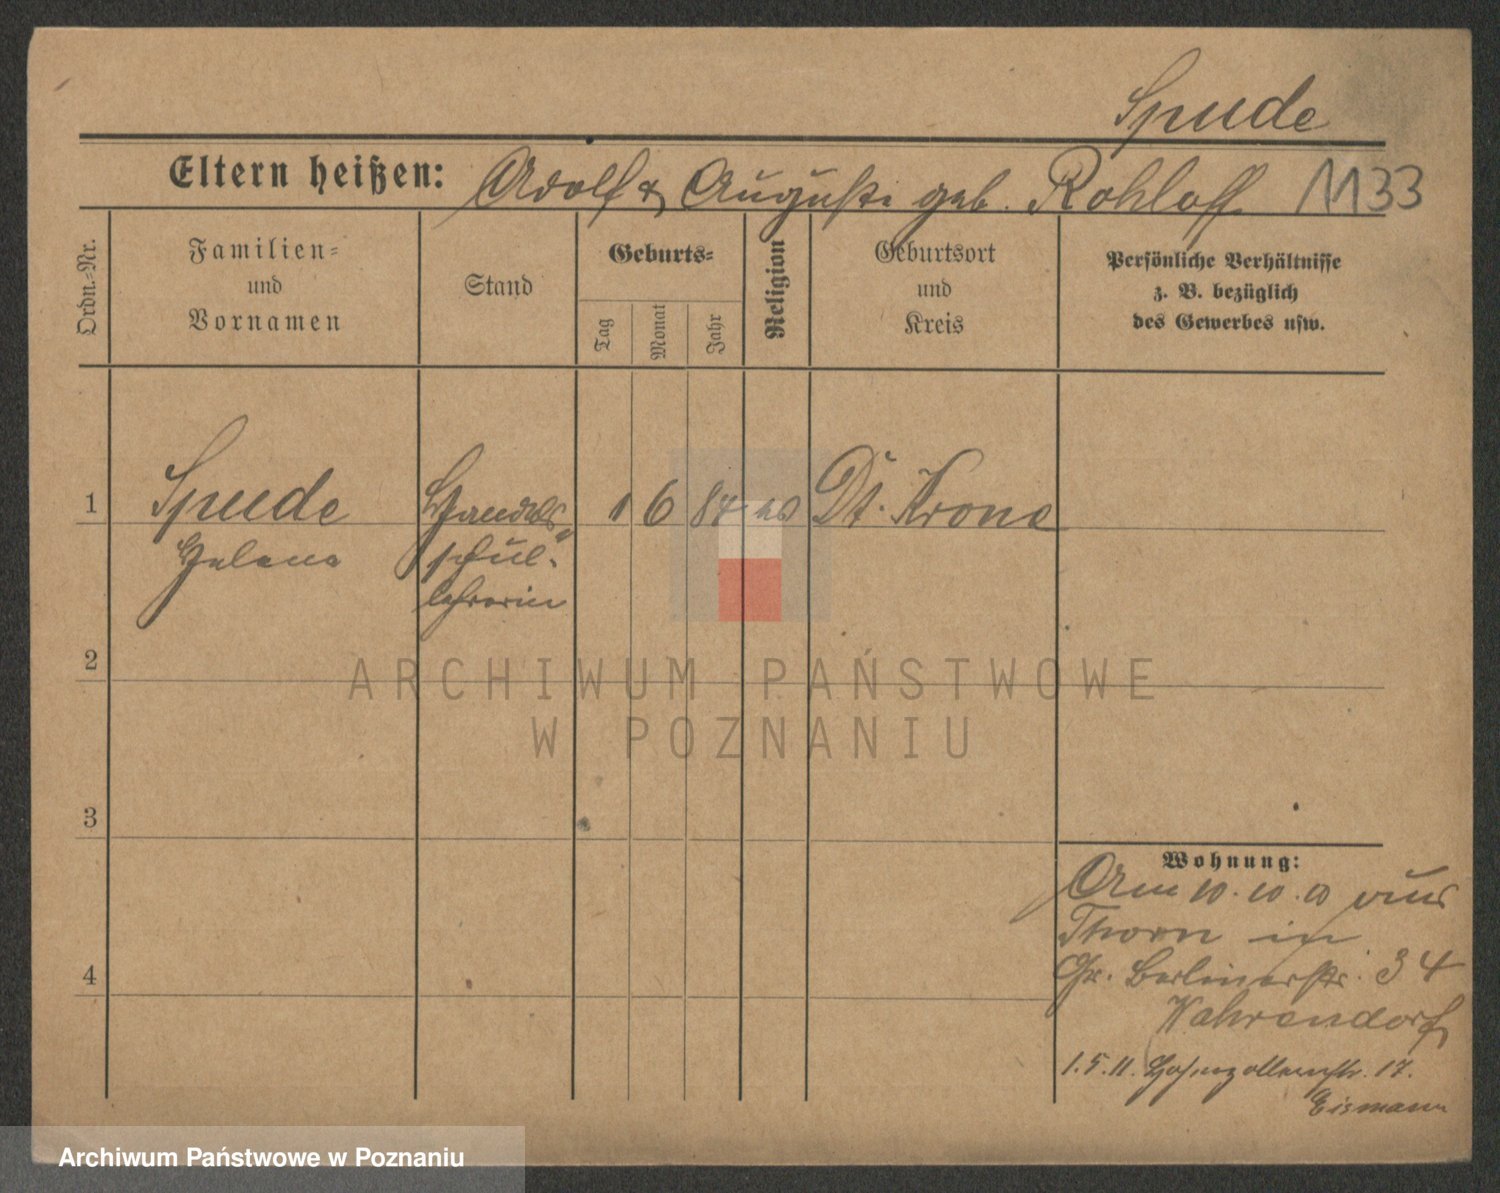 Spude
Eltern heißen: Adolf & Auguste geb. Rohloff 1133
Ordn.-Nr.
Familien-
und
Vornamen
Stand
Geburts-
Tag
Monat
Jahr
Religion
Geburtsort
und
Kreis
Persönliche Verhältnisse
z. B. bezüglich
des Gewerbes usw.
1 Spude Handels- 1 6 84 Dt. Krone
Helene schul-
lehrerin
2
ARCHIWUM PAŃSTWOWE
W POZNANIU
3
Wohnung:
Am 10.10.10 aus
Thorn in
4 Gr. Berlinerstr. 34
Wahrendorf
1.5.11. Hohenzollernstr. 17.
Eismann
Archiwum Państwowe w Poznaniu